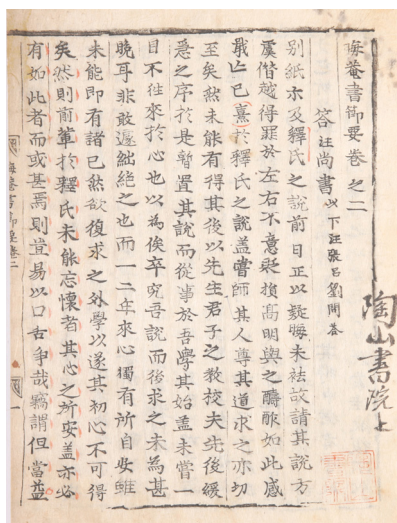 晦菴書節要卷之二
答汪尚書 以下汪張呂劉問答
別紙示及釋氏之說前日正以疑晦未袪故請其說方
虞僣越得罪於左右不意貶損高明與之醻酢如此感
戢亡已熹於釋氏之說盖嘗師其人尊其道求之亦切
至矣然未能有得其後以先生君子之敎校夫先後緩
急之序於是暫置其說而從事於吾學其始盖未嘗一
日不往來於心也以為俟卒究吾說而後求之未為甚
晚耳非敢遽絀絶之也而一二年來心獨有所自安雖
未能即有諸己然欲復求之外學以遂其初心不可得
矣然則前軰於釋氏未能忘懷者其心之所安盖亦必
有如此者而或甚焉則豈易以口舌爭哉竊謂但當益
陶山書院上